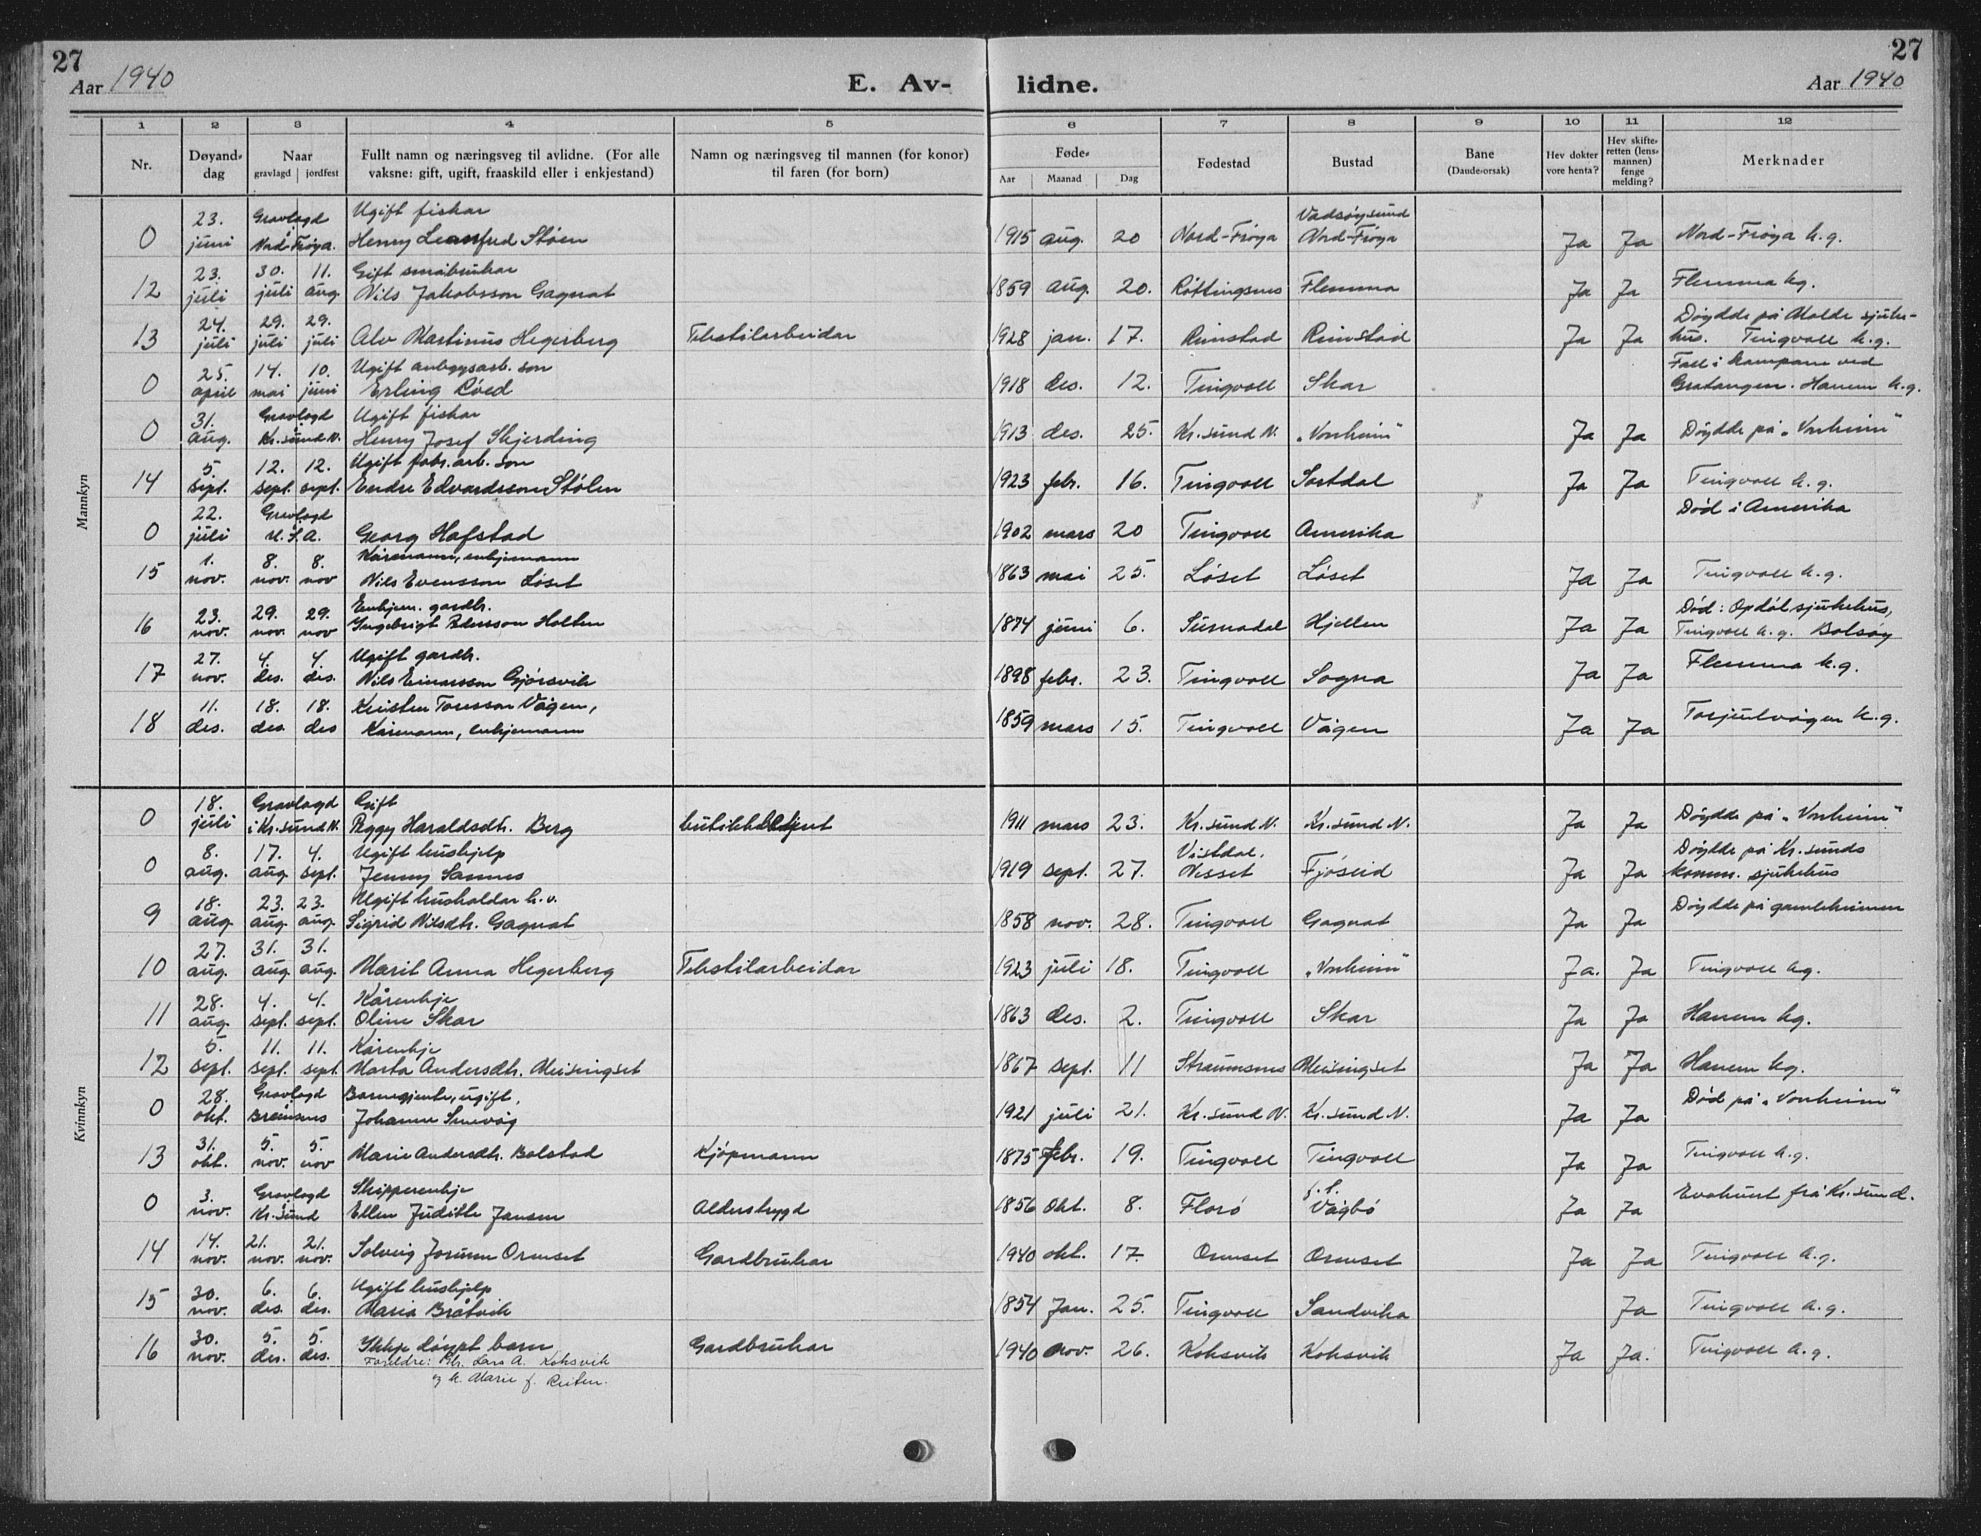 27
27
Aar 1940
E. Av-
lidne.
Aar 1940
1 2 3 4 5 6 7 8 9 10 11 12
Nr.
Døyand-
dag
Naar
gravlagd jordfest
Fullt namn og næringsveg til avlidne. (For alle
vaksne: gift, ugift, fraaskild eller i enkjestand)
Namn og næringsveg til mannen (for konor)
til faren (for born)
Føde-
Aar Maanad Dag
Fødestad
Bustad
Bane
(Daude-orsak)
Hev dokter
vore henta?
Hev skifte-
retten (lens-
mannen)
fenge
melding?
Merknader
Mannkyn
23. Gravlagd Ugift fiskar Vadsøysund
0 juni Nord-Frøya Henry Leanfred Støen 1915 aug. 20 Nord-Frøya Nord-Frøya Ja Ja Nord-Frøya k.g.
23. 30. 11. Gift småbrukar
12 juli juli aug. Nils Jakobsson Gagnat 1859 aug. 20. Røttingsnes Flemma Ja Ja Flemma kg.
24. 29. 29. Døydde på Molde sjuke-
13 juli juli juli Alv Martinus Hegerberg Tekstilarbeidar 1928 jan. 17. Rimstad Rimstad Ja Ja hus. Tingvoll k.g.
25. 14. 10. Ugift anleggsarb. son Fall i kampane ved
0 april mai juni Erling Røed 1918 des. 12. Tingvoll Skar Gratangen. Hanem k.g.
31. Gravlagd Ugift fiskar
0 aug. Kr.sund N. Henry Josef Skjerding 1913 des. 25. Kr.sund N. "Vonheim" Ja Ja Døydde på "Vonheim"
5. 12. 12. Ugift fabr.arb. son
14 sept. sept. sept. Endre Edvardsson Stølen 1923 febr. 16. Tingvoll Sortdal Ja Ja Tingvoll k.g.
22. Gravlagd Død i Amerika
0 juli U.S.A. Georg Hafstad 1902 mars 20 Tingvoll Amerika
1. 8. 8. Kårmann, enkjemann
15 nov. nov. nov Nils Evensson Løset 1863 mai 25. Løset Løset Ja Ja Tingvoll k.g.
23. 29. 29. Enkjem. gardbr. Død: Opdøl sjukehus,
16 nov. nov. nov Ingebrigt Pedersson Holten 1874 juni 6. Surnadal Hjellen Ja Ja Tingvoll k.g. Bolsøy
27. 4. 4. Ugift gardbr.
17 nov. des. des. Nils Einarsson Gjørsvik 1898 febr. 23. Tingvoll Sogna Ja Ja Flemma k.g.
11. 18. 18. Kristen Toresson Vågen,
18 des. des des Kårmann, enkjemann 1859 mars 15. Tingvoll Vågen Ja Ja Torjulvågen k.g.
Kvinnkyn
18. Gravlagd Gift
0 juli i Kr.sund N. Peggy Haraldsdtr. Berg butikkbetjent 1911 mars 23. Kr.sund N. Kr.sund N. Ja Ja Døydde på "Vonheim"
8. 17. 4. Ugift hushjelp Vistdal. Døydde på Kr.sunds
0 aug. aug. sept. Jenny Sannes 1919 sept. 27. Nisset Fjøseid Ja Ja komm. sjukehus
18. 23. 23. Ugift husholdar k.v.
9 aug. aug. aug. Sigrid Nilsdtr. Gagnat 1858 nov. 28. Tingvoll Gagnat Ja Ja Døydde på gamleheimen
27. 31. 31.
10 aug. aug. aug. Marit Anna Hegerberg Tekstilarbeidar 1923 juli 18. Tingvoll "Vonheim" Ja. Ja Tingvoll kg.
28. 4. 4. Kårenkje
11 aug. sept. sept. Oline Skar 1863 des. 2. Tingvoll Skar Ja Ja Hanem kg.
5. 11. 11. Kårenkje
12 sept. sept. sept. Marta Andersdtr. Meisingset 1867 sept. 11 Straumsnes Meisingset Ja Ja Hanem kg.
28. Gravlagd Barnegjente, ugift,
0 okt. Bremsnes Johanne Smevåg 1921 juli 21. Kr.sund N. Kr.sund N. Ja Ja Død på "Vonheim"
31. 5. 5.
13 okt. nov. nov Marie Andersdtr. Bolstad Kjøpmann 1875 febr. 19. Tingvoll Tingvoll Ja Ja Tingvoll k.g.
3. Gravlagd Skipperenkje f.t.
0 nov. Kr.sund Ellen Judithe Jansen Alderstrygd 1856 okt. 8. Florø Vågbø Ja Ja Evakuert frå Kr.sund.
14. 21. 21.
14 nov. nov. nov. Solveig Jorunn Ormset Gardbrukar 1940 okt. 17. Ormset Ormset Ja Ja Tingvoll k.g.
30. 6. 6. Ugift hushjelp
15 nov. des. des. Maria Bråtvik 1854 Jan. 25. Tingvoll Sandvika Ja Tingvoll k.g.
30. 5. 5.
16 nov. des. des. Ikkje døypt barn Gardbrukar 1940 nov. 26. Koksvik Koksvik Ja Ja. Tingvoll k.g.
Foreldre: Gbr. Lars A. Koksvik
og k. Marie f. Reiten.